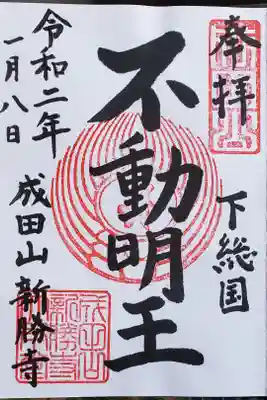 奉拝
下総国
不動明王
令和二年
一月八日
成田山新勝寺
成田山
新勝寺